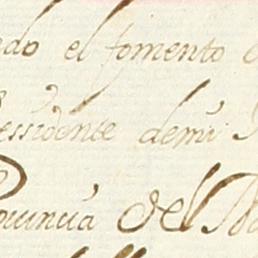 edo el fomento
essidente demi
Prouincia Del